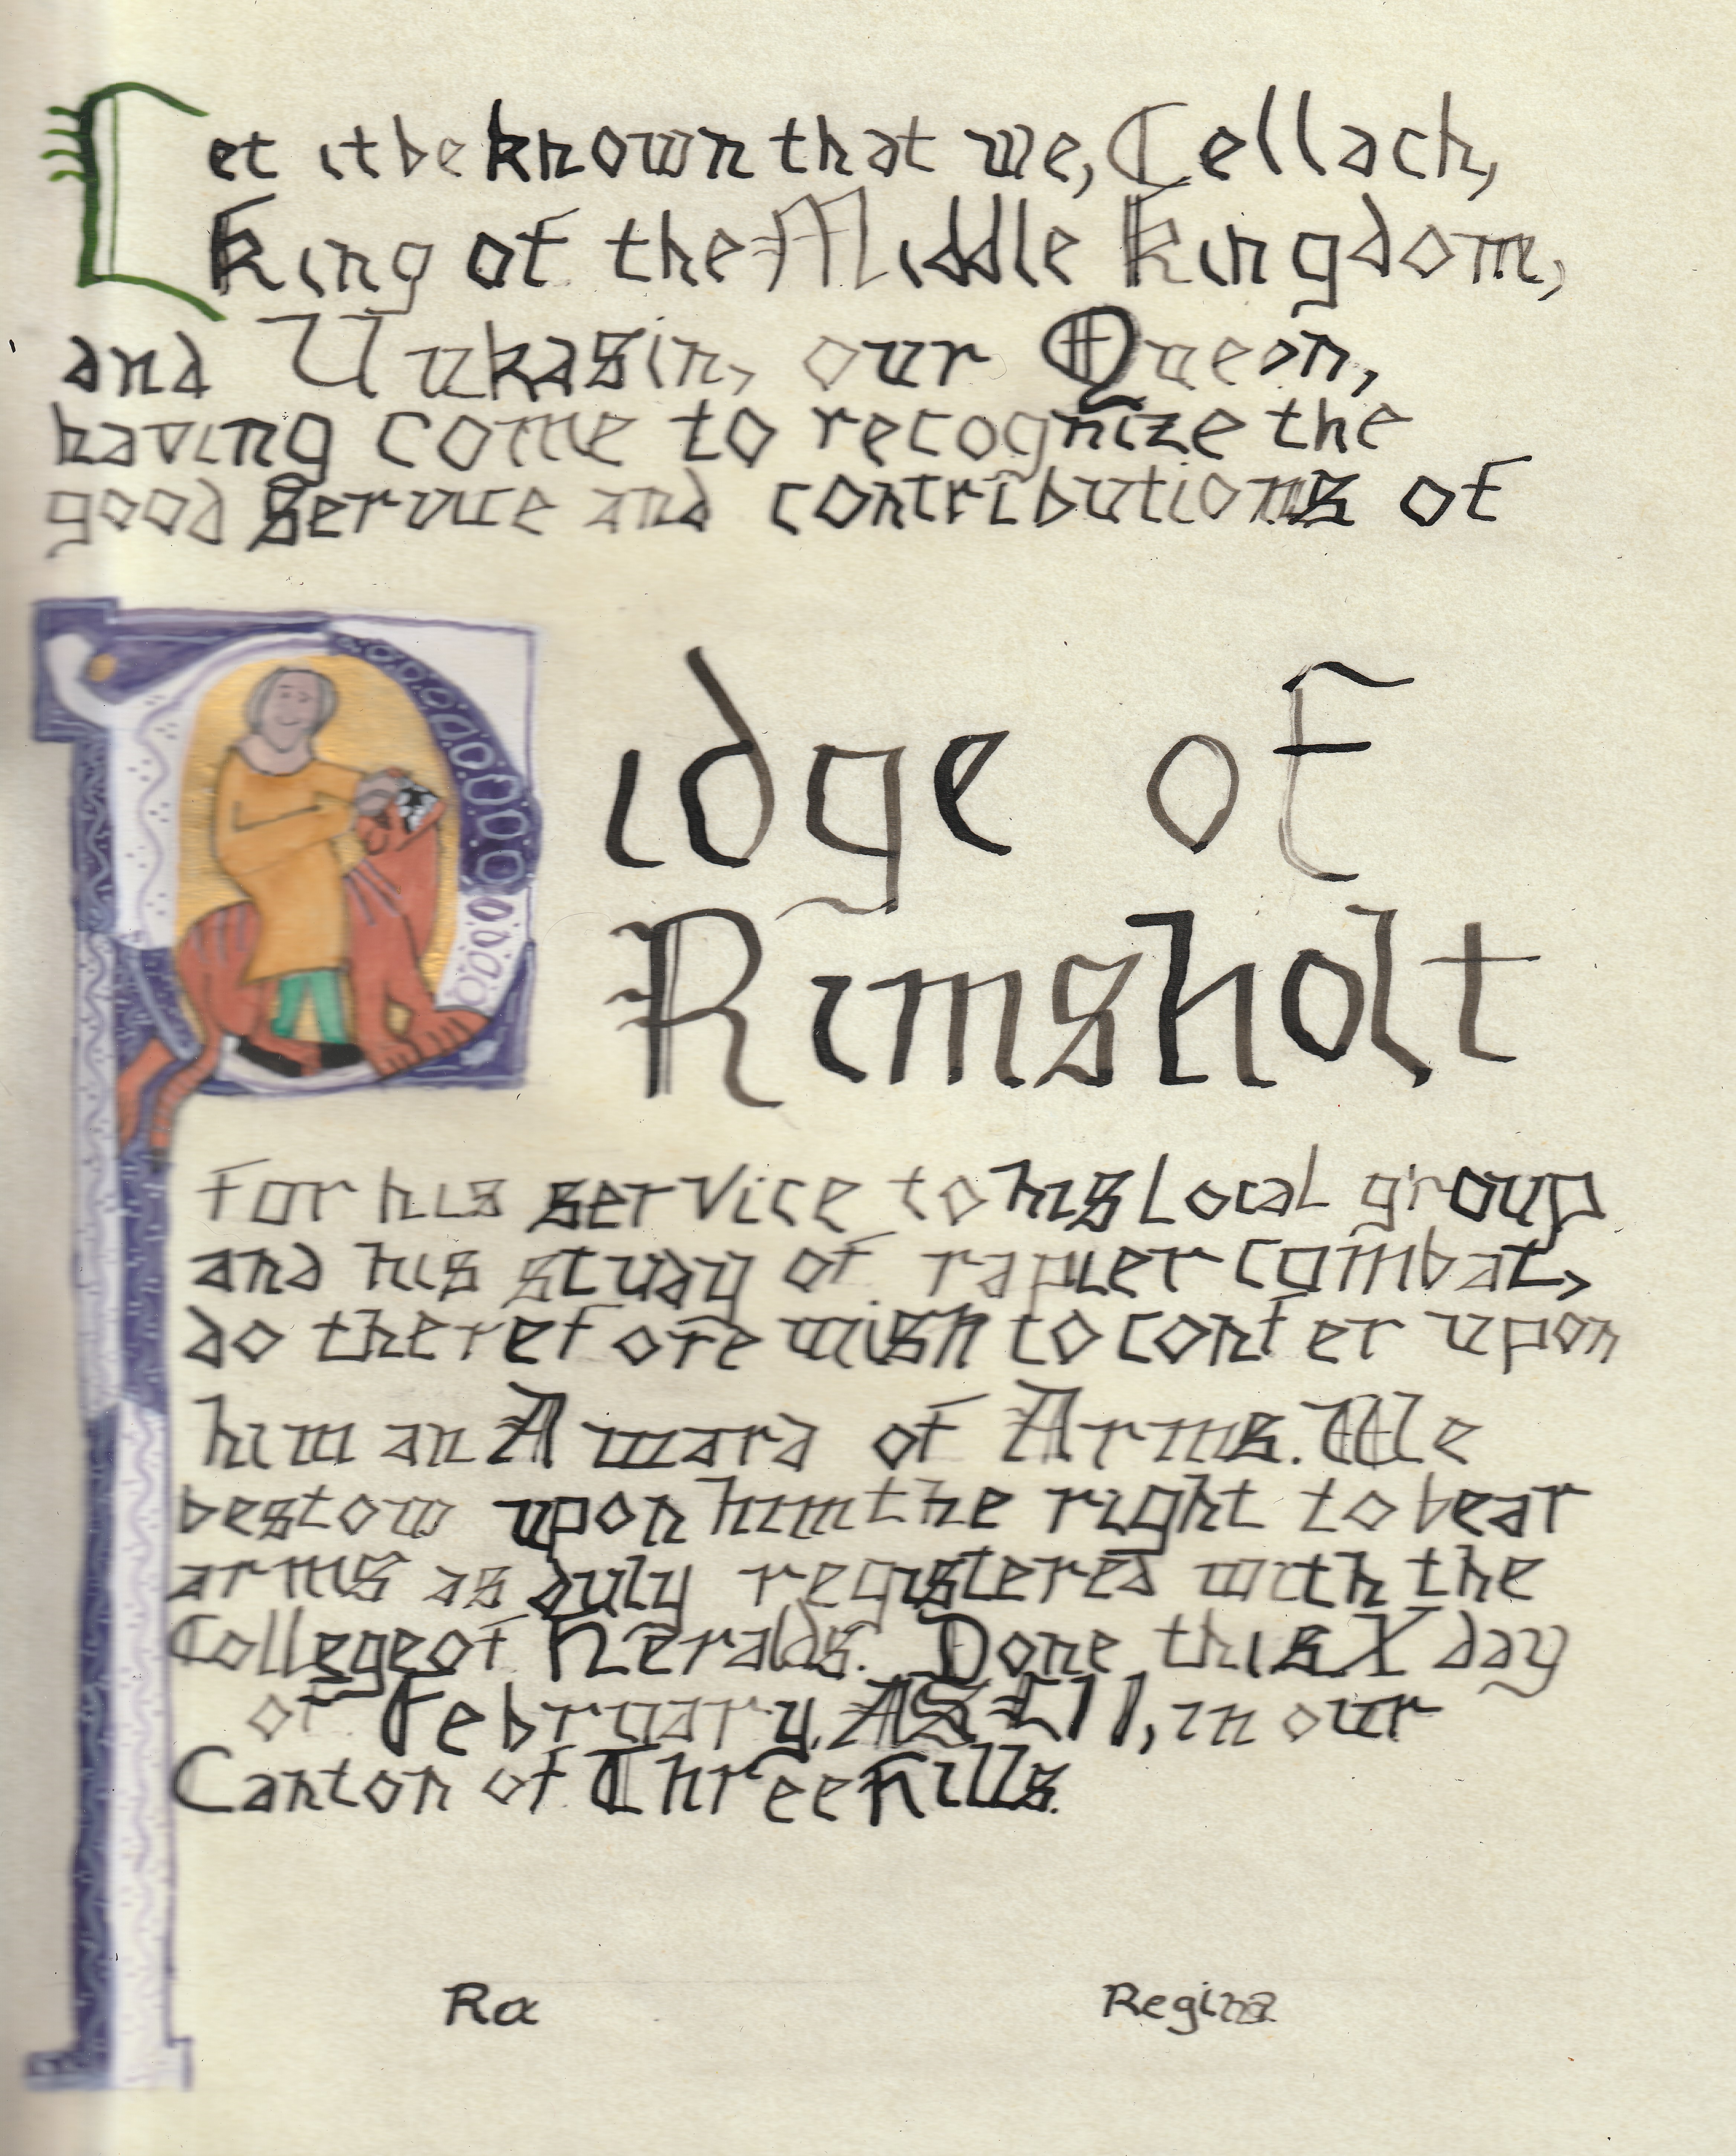 Let it be known that we, Cellach,
King of the Middle Kingdom,
and Vukasin, our Queen,
having come to recognize the
good Service and contributions of
Pidge of
Rimsholt
for his service to his local group
and his study of rapier combat,
do therefore wish to confer upon
him an Award of Arms. We
bestow upon him the right to bear
arms as duly registered with the
College of Heralds. Done this X day
of February, AS LII, in our
Canton of Three Hills.
Rex Regina